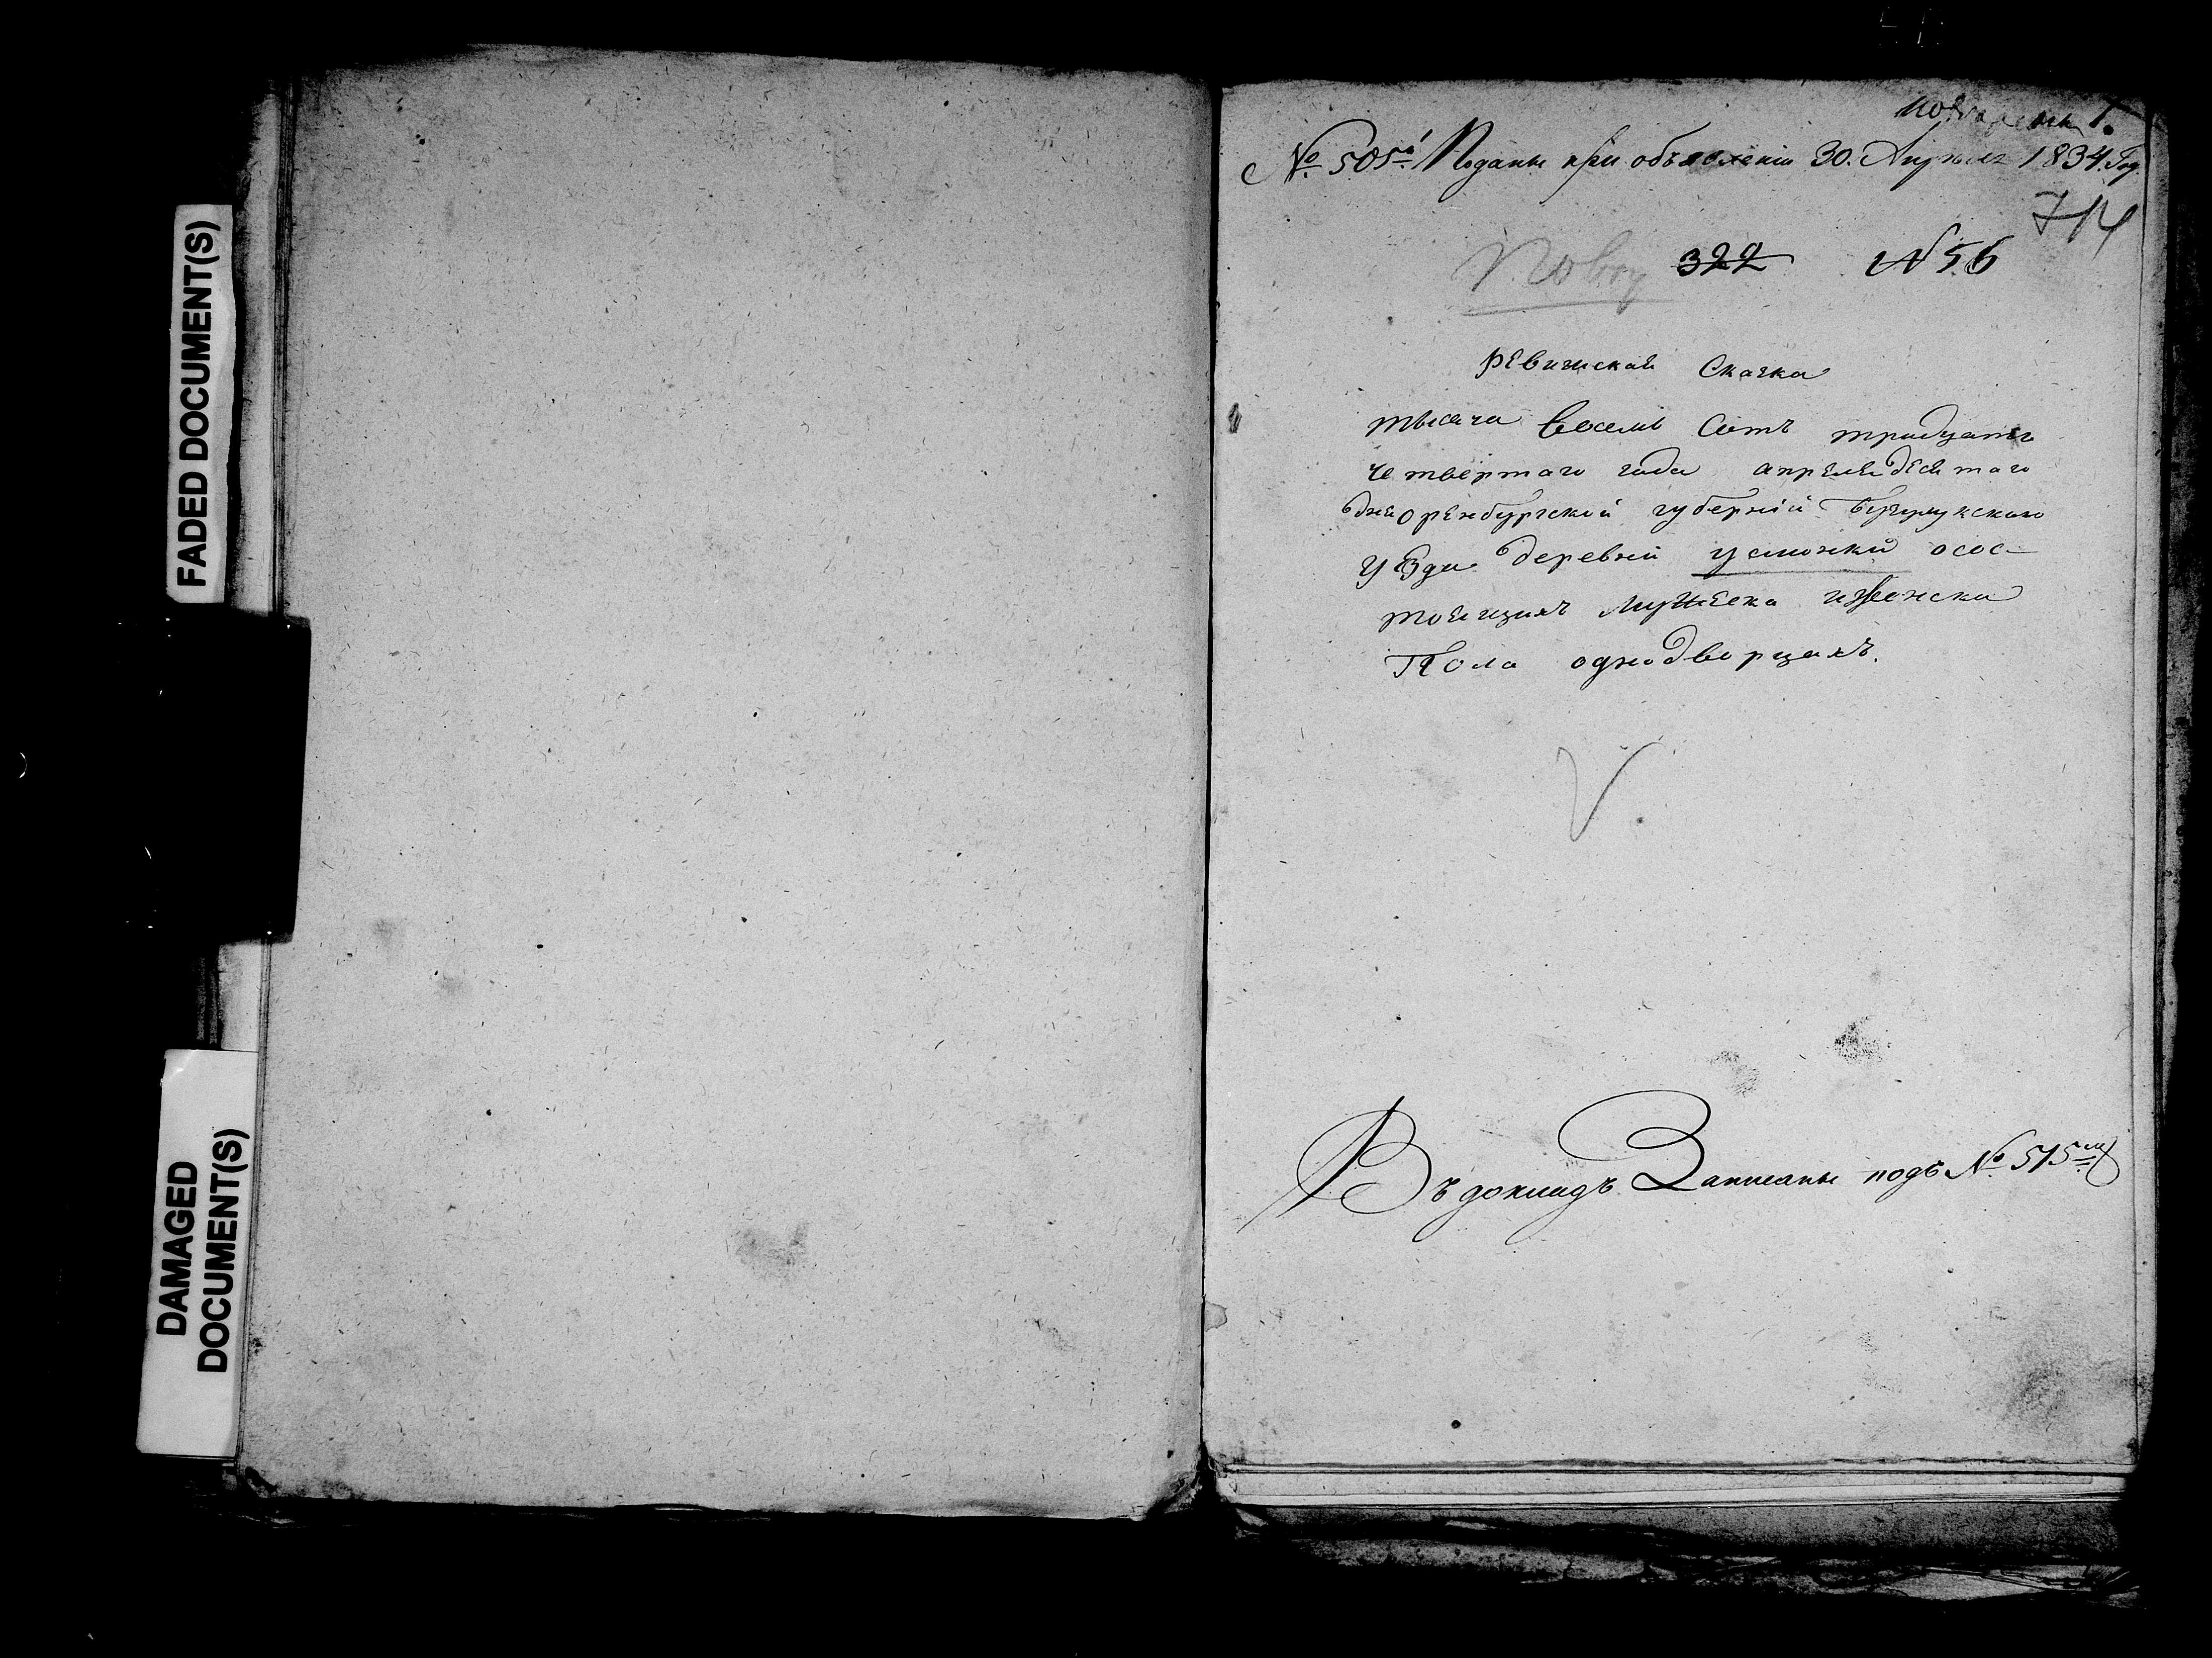 FADED DOCUMENT(S)
DAMAGED
DOCUMENT(S)
1.
№ 505й Поданы при объявленіи 30. Апрѣля 1834. Год.
714
322 № 56
Ревижская Скаска
тысяча восемь сотъ тридцать
четвертаго года апреля десятаго
дня оренбургской губерніи бугурускаго
уезда деревни усмонки осос-
тоящихъ Мужеска иженска
Пола однодворцахъ.
Въ докладъ Записаны подъ № 515м